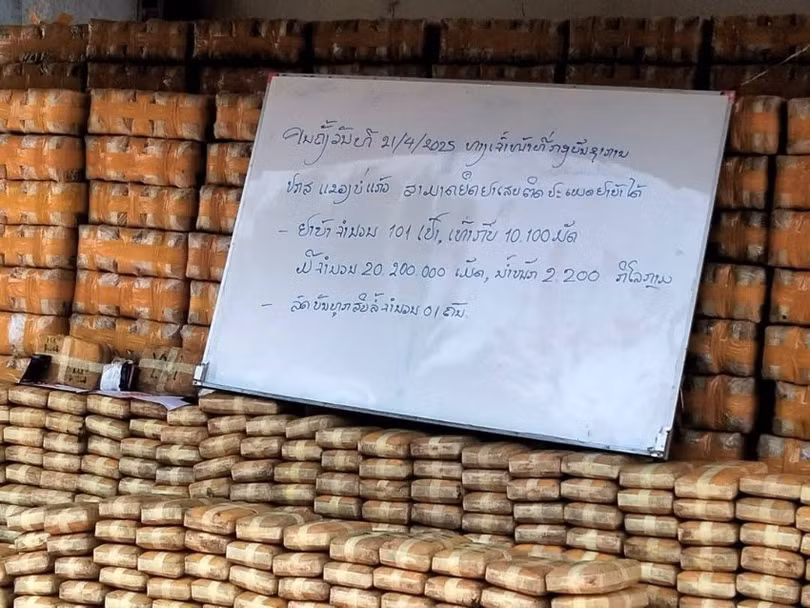 ຄນຄັ້ງວັນທີ 21/4/2025 ທາງເຈົ້າໜ້າທີ່ກອງບັນຊາການ
ປກສ ແຂວງບໍ່ແກ້ວ ສາມາດຍຶດຢາເສບຕິດປະເພດຢາບ້າໄດ້
- ຢາບ້າຈຳນວນ 101 ເປົາ, ເທົ່າກັບ 10.100 ມັດ
ມີຈຳນວນ 20.200.000 ເມັດ, ນ້ຳໜັກ 2.200 ກິໂລກຼາມ
- ລົດບັນທຸກສິບລໍ້ຈຳນວນ 01 ຄັນ.